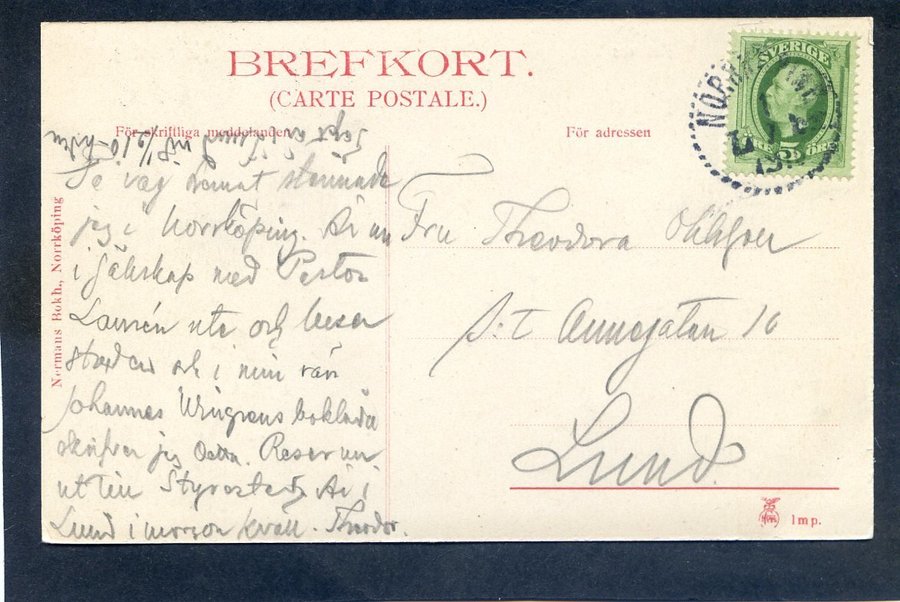 BREFKORT.
(CARTE POSTALE.)
För skriftliga meddelanden
För adressen
SVERIGE
5
ÖRE
Normans Bokh., Norrköping
På väg hemåt stannade
jag i Norrköping. Är nu
i sällskap med Pastor
Laurén ute och beser
staden och i min vän
Johannes Wingrens boklåda
skrifver jag detta. Reser nu
ut till Styrestad. Är i
Lund i morgon kväll. Theodor.
Fru Theodora
p:t Annegatan 10
Lund
Imp.